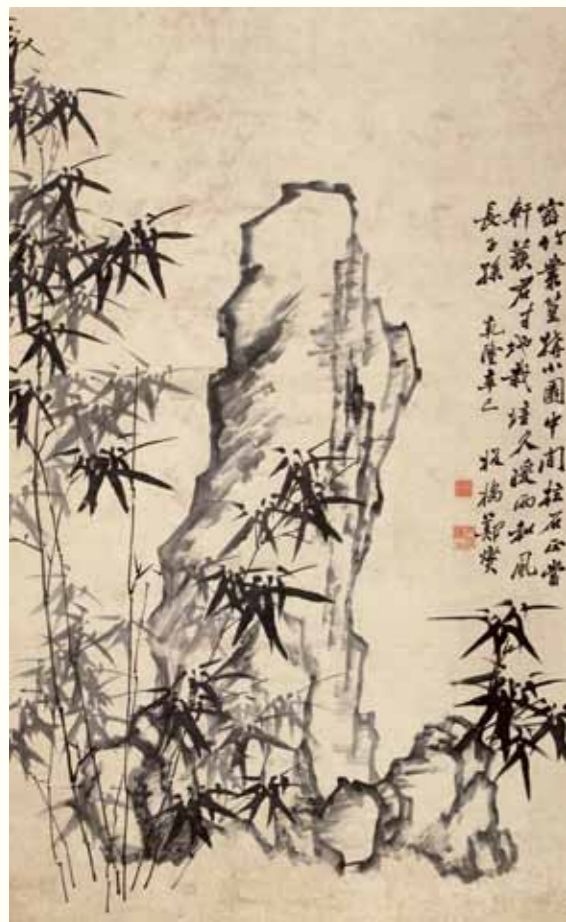 密竹叢篁護小園中間柱石正當
軒羨君寸地栽培久暖雨和風
長子孫 乾隆辛巳 板橋鄭燮